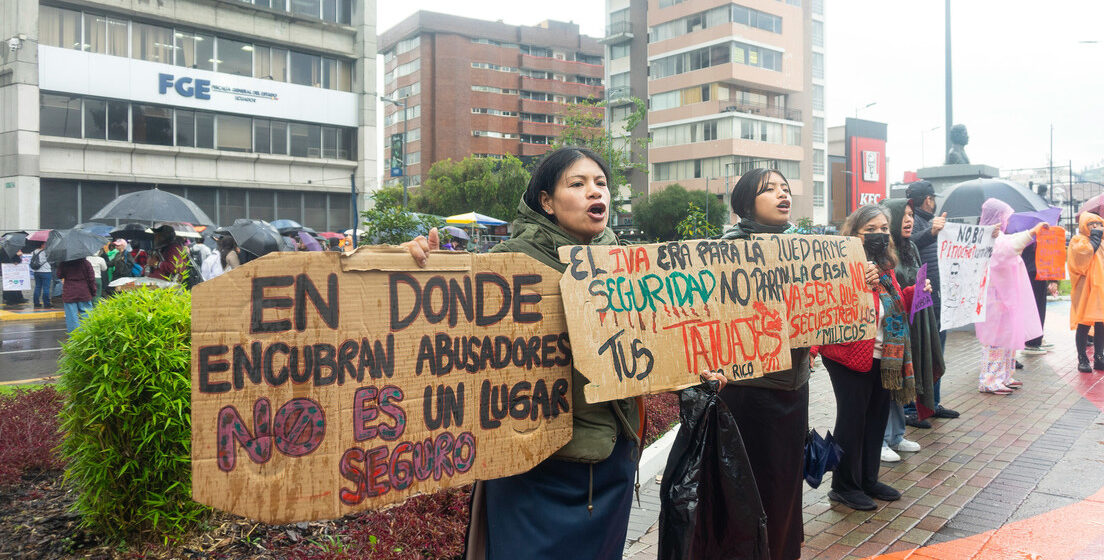 FGE
FISCALÍA GENERAL DEL ESTADO
ECUADOR
KFC
EN DONDE
ENCUBRAN ABUSADORES
NO ES UN LUGAR
SEGURO
EL IVA ERA PARA LA
SEGURIDAD, NO PARA
TUS TATUAJES
RICO
"QUEDARME
EN LA CASA
VA SER QUE
SECUESTREN LOS
MILICOS
NOBOA